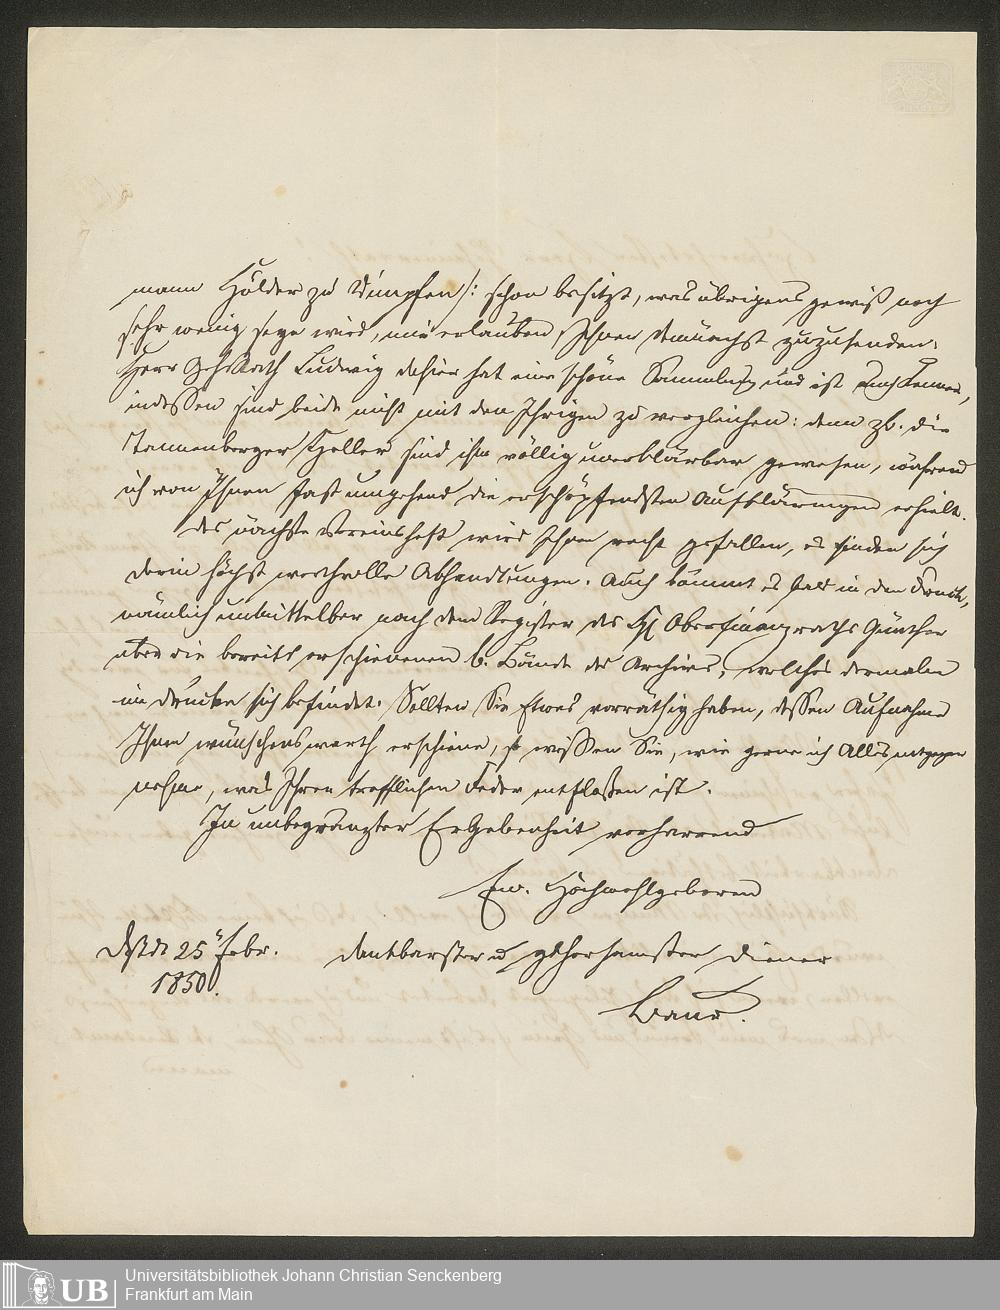 mann Hölder zu Wimpfen/: schon besitzt, was übrigens gewiß nach
sehr wenig seyn wird, mir erlauben, Ihnen demnächst zuzusenden.
Herr GehRath Ludwig dahier hat eine schöne Sammlung und ist auch Kenner,
indessen sind beide nicht mit den Ihrigen zu vergleichen: denn zb. die
Tannenberger Heller sind ihm völlig unerklärbar gewesen, während
ich von Ihnen fast umgehend die erschöpfendsten Aufklärungen erhielt.
Das nächste Vereinsheft wird Ihnen recht gefallen, es finden sich
darin höchst werthvolle Abhandlungen. Auch kömmt es bald in den Druck,
nämlich unmittelbar nach dem Register des H Oberfinanzraths Günther
über die bereits erschienenen 6. Bände des Archivs, welches dermalen
im Drucke sich befindet. Sollten Sie Etwas vorräthig haben, dessen Aufnahme
Ihnen wünschenswerth erschiene, so wissen Sie, wie gerne ich Alles entgegen
nehme, was Ihrer trefflichen Feder entflossen ist.
In unbegränzter Ergebenheit verharrend
Ew. Hochwohlgeboren
Dstdt 25 Febr. dankbarster u gehorsamster Diener
1850.
Baur.
Universitätsbibliothek Johann Christian Senckenberg
UB Frankfurt am Main